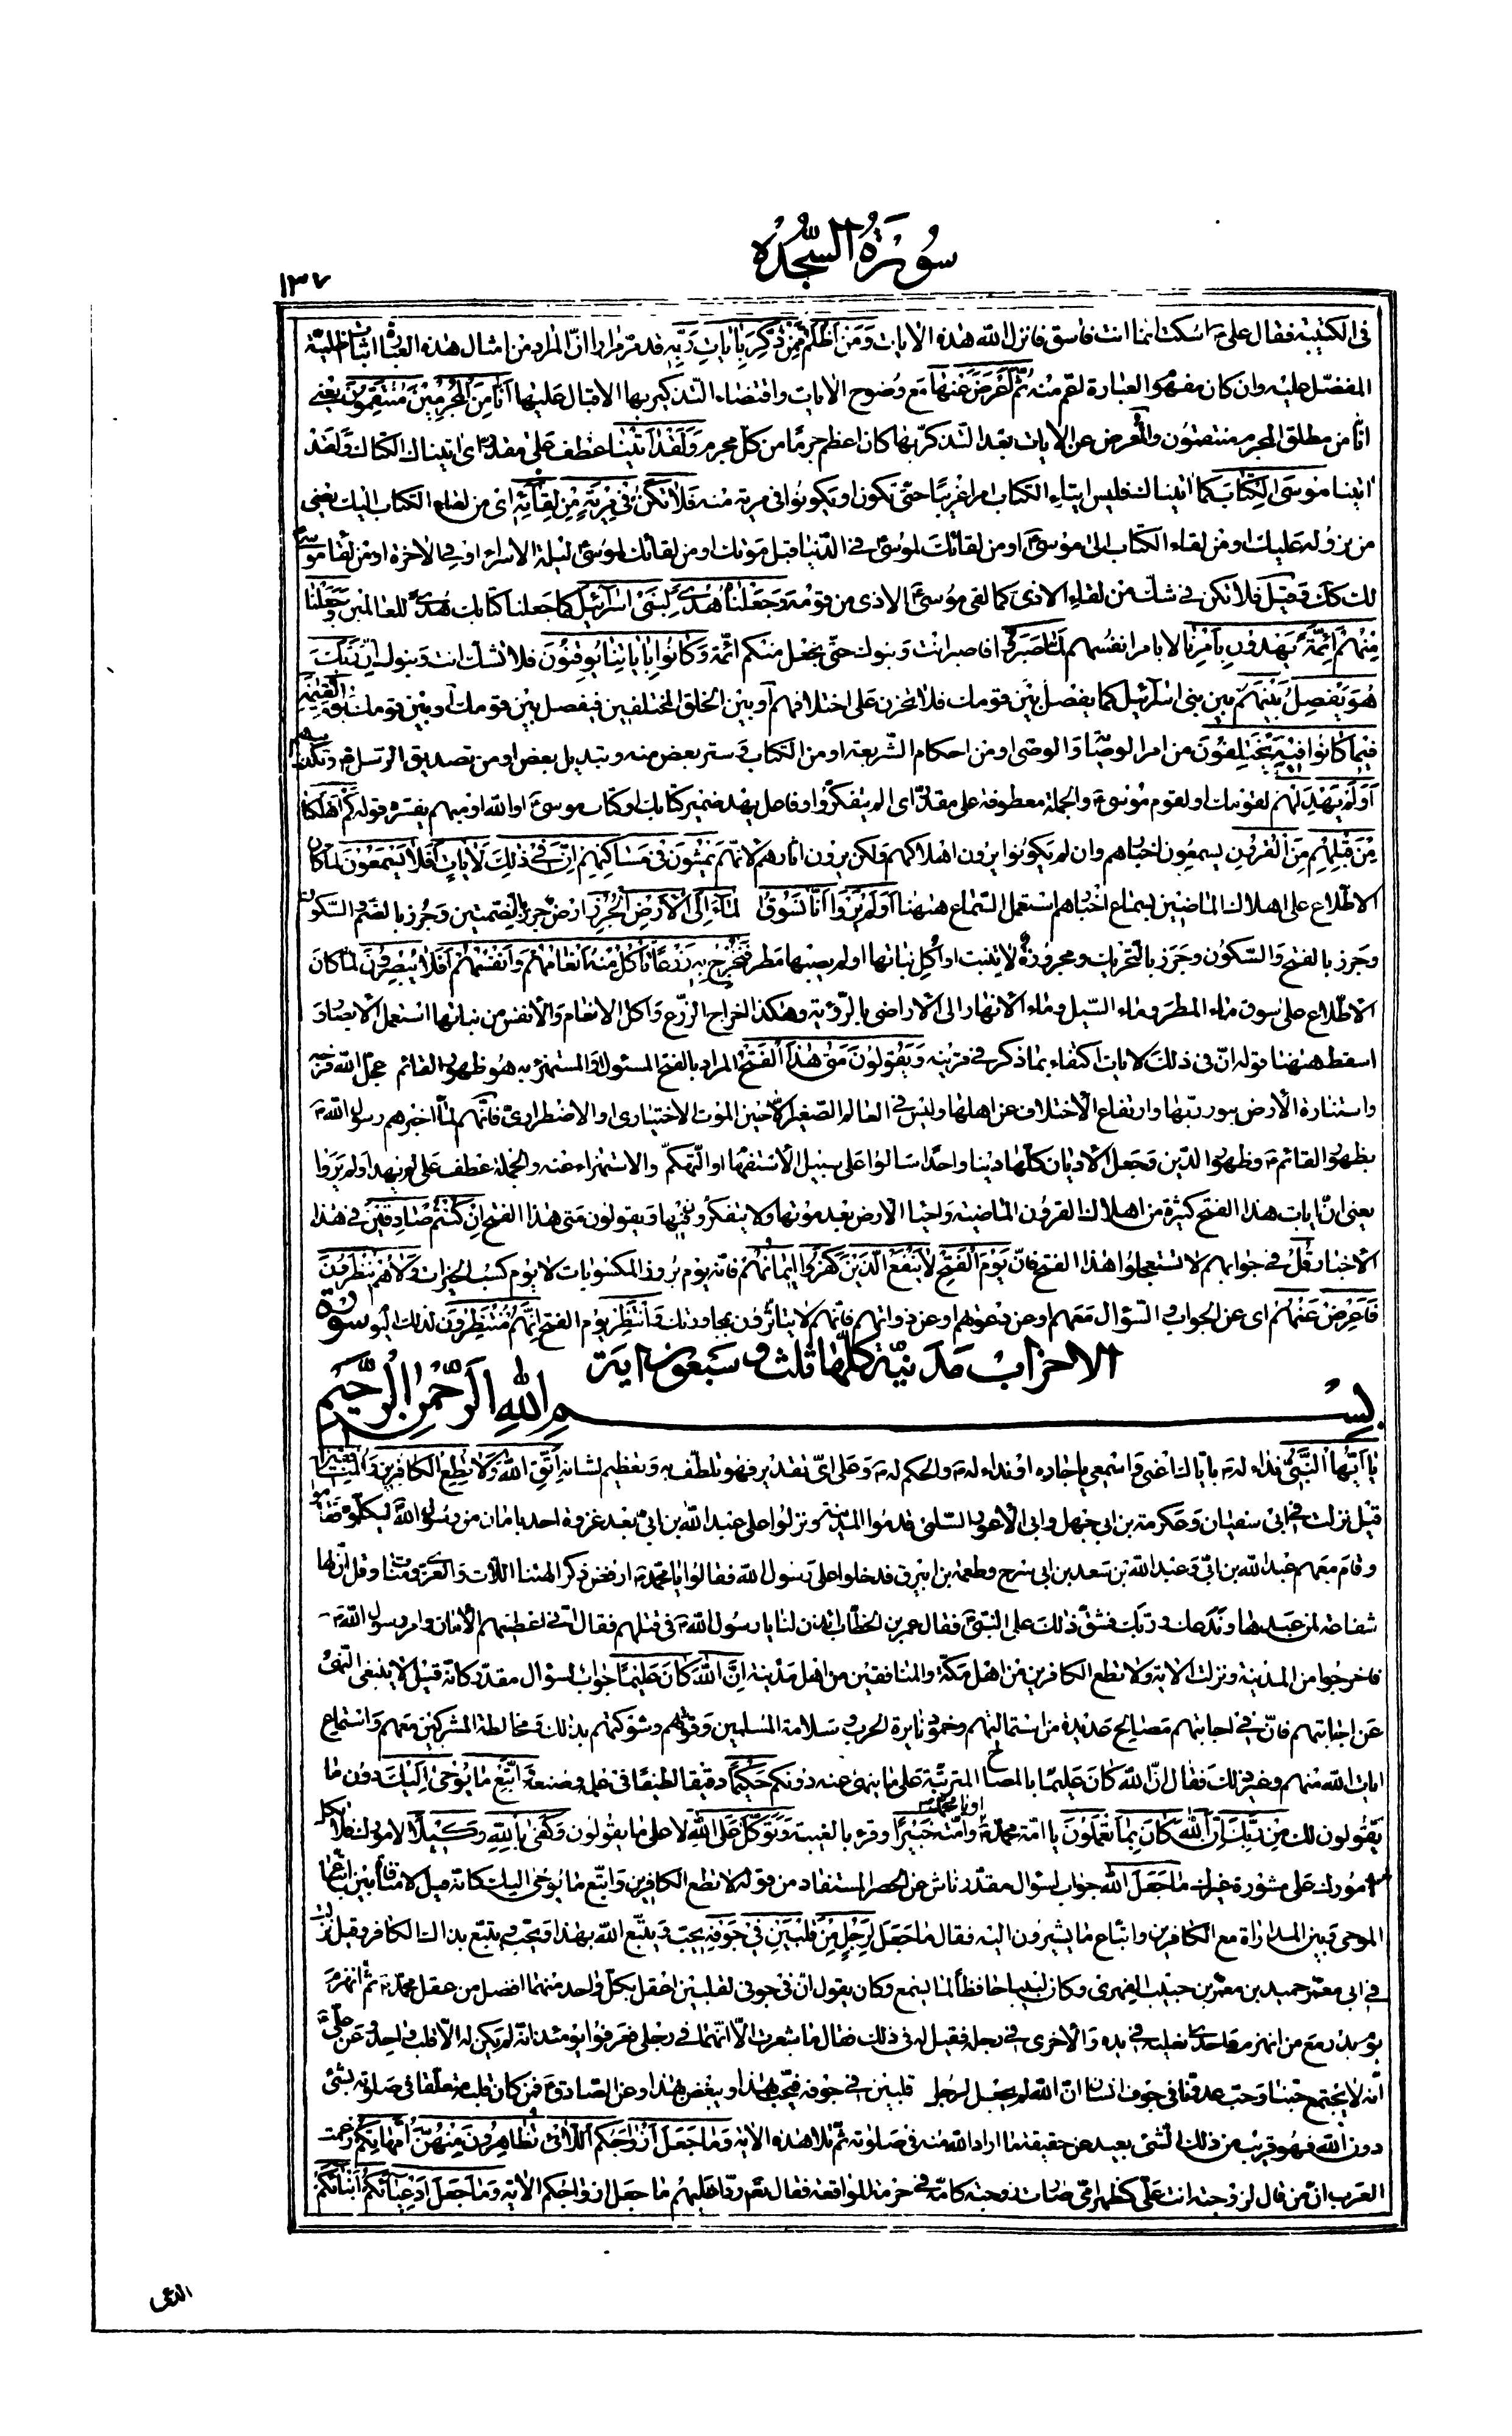 سُورَةُ السَّجْدَه
١٣٧
فى الكتيبة فقال علىّ اسكت انما انت فاسق فانزل الله هذه الايات وَمَنْ اَظْلَمُ مِمَّنْ ذُكِّرَ بِايَاتِ رَبِّه قد مر مرارا انّ المراد من امثال هذه العبارة اثبات اظلميّة
المفضّل عليه وان كان مفهوم العبارة اعم منه ثُمَّ اَعْرَضَ عَنْهَا مع وضوح الايات واقتضاء التذكير بها الاقبال عليها اِنَّا مِنَ الْمُجْرِمِينَ مُنْتَقِمُونَ يعنى
انّا من مطلق المجرم منتقمون والمعرض عن الايات بعد التذكر بها كان اعظم جرما من كل مجرم وَلَقَدْ اتَيْنَا عطف على مقدّر اى اتيناك الكتاب وَلَقَدْ
اتينا مُوسَى الْكِتَابَ كما اتيناك فليس ايتاء الكتاب امرا غريبا حتى تكون او يكونوا فى مرية منه فَلَا تَكُنْ فى مِرْيَةٍ مِنْ لِقَائِه اى من لقاء الكتاب اليك يعنى
من نزوله عليك او من لقاء الكتاب الى موسى او من لقائك لموسى فى الدنيا قبل موتك او من لقائك لموسى ليلة الاسراء او فى الاخرة او من لقاء موسى
لك كذلك وقيل فلا تكن فى شك من لقاء الاذى كما لقى موسى الاذى من قومه وَجَعَلْنَاهُ هُدًى لِبَنى اِسْرَائيلَ كما جعلنا كتابك هدى للعالمين وَجَعَلْنَا
مِنْهُمْ اَئِمَّةً يَهْدُونَ بِاَمْرِنَا لا بامر انفسهم لَمَّا صَبَرُوا فاصبر انت وبنوك حتى يجعل منكم ائمة وَكَانُوا بِايَاتِنَا يُوقِنُونَ فلا تشك انت وبنوك اِنَّ رَبَّكَ
هُوَ يَفْصِلُ بَيْنَهُمْ بين بنى اسرائيل كما يفصل بين قومك فلا تحزن على اختلافهم او بين الخلق المختلفين فيفصل بين قومك او بين قومك يَوْمَ الْقِيمَةِ
فيمَا كَانُوا فيهِ يَخْتَلِفُونَ من امر الوصاية والوصى او من احكام الشريعة او من الكتاب فى ستر بعض منه وتبديل بعض او من تصديق الرسل وتكذيبهم
اَوَلَمْ يَهْدِ لَهُمْ لقومك او لقوم موسى والجملة معطوفة على مقدّر اى الم يتفكروا وفاعل يهد ضمير كتابك او كتاب موسى او الله او مبهم يفسره قوله كَمْ اَهْلَكْنَا
مِنْ قَبْلِهِمْ مِنَ الْقُرُونِ يسمعون اخبارهم وان لم يكونوا يرون اهلاكهم ولكن يرون اثارهم لانهم يَمْشُونَ فى مَسَاكِنِهِمْ اِنَّ فى ذلِكَ لَايَاتٍ اَفَلَا يَسْمَعُونَ لما كان
الاطلاع على اهلاك الماضين بسماع اخبارهم استعمل السماع ههنا اَوَلَمْ يَرَوْا اَنَّا نَسُوقُ الْمَاءَ اِلَى الْاَرْضِ الْجُرُزِ ارض جرز بالضمتين وجرز بالضم والسكون
وجرز بالفتح والسكون وجرز بالتحريك ومجروزة لا ينبت او اكل نباتها او لم يصبها مطر فَنُخْرِجُ بِه زَرْعًا تَاْكُلُ مِنْهُ اَنْعَامُهُمْ وَاَنْفُسُهُمْ اَفَلَا يُبْصِرُونَ لما كان
الاطلاع على سوق ماء المطر وماء السيل وماء الانهار الى الاراضى بالرؤية وهكذا اخراج الزرع واكل الانعام والانفس من نباتها استعمل الابصار و
اسقط ههنا قوله ان فى ذلك لايات اكتفاء بما ذكر فى قرينه وَيَقُولُونَ مَتى هذَا الْفَتْحُ المراد بالفتح المسئول والمستهزء به هو ظهور القائم عجل الله فرجه
واستنارة الارض بنور ربها وارتفاع الاختلاف عن اهلها وليس فى العالم الصغير الا حين الموت الاختيارى او الاضطرارى فانهم لما اخبرهم رسول الله
بظهور القائم وظهور الدين وجعل الاديان كلها دينا واحدا سالوا على سبيل الاستفهام او التهكم والاستهزاء عنه والجملة عطف على لم يهد او لم يروا
يعنى ان ايات هذا الفتح كثيرة من اهلاك القرون الماضية واحياء الارض بعد موتها ولا يتفكرون فيها ويقولون متى هذا الفتح اِنْ كُنْتُمْ صَادِقينَ فى هذا
الاخبار قُلْ فى جوابهم لا تستعجلوا هذا الفتح فان يَوْمَ الْفَتْحِ لَا يَنْفَعُ الَّذينَ كَفَرُوا ايمَانُهُمْ فانه يوم بروز المكسوبات لا يوم كسب الخيرات وَلَا هُمْ يُنْظَرُونَ
فَاَعْرِضْ عَنْهُمْ اى عن الجواب والسؤال معهم او عن دعوتهم او عن ذواتهم فانهم لا يتاثرون بمجاورتك وَانْتَظِرْ يوم الفتح اِنَّهُمْ مُنْتَظِرُونَ لذلك اليوم سورة
الاحزاب مدنية كلها ثلث وسبعون اية
بِسْمِ اللهِ الرَّحْمنِ الرَّحيمِ
يَا اَيُّهَا النَّبِىُّ نداء له باياك اعنى واسمعى يا جاره او نداء له والحكم له وعلى اى تقدير فهو تلطف به وتعظيم لشانه اتَّقِ اللهَ وَلَا تُطِعِ الْكَافِرينَ وَالْمُنَافِقينَ
قيل نزلت فى ابى سفيان وعكرمة بن ابى جهل وابى الاعور السلمى قدموا المدينة ونزلوا على عبد الله بن ابى بعد غزوة احد بامان من رسول الله ليكلموه فقاموا
وقام معهم عبد الله بن ابى وعبد الله بن سعد بن ابى سرح وطعمة بن ابيرق فدخلوا على رسول الله فقالوا يا محمد ارفض ذكر الهتنا اللات والعزى ومنات وقل ان لها
شفاعة لمن عبدها وندعك وربك فشق ذلك على النبى فقال عمر بن الخطاب ائذن لنا يا رسول الله فى قتلهم فقال انى اعطيتهم الامان وامر رسول الله
فاخرجوا من المدينة ونزلت الاية ولا تطع الكافرين من اهل مكة والمنافقين من اهل مدينة اِنَّ اللهَ كَانَ عَليمًا جواب لسؤال مقدر كانه قيل لا ينبغى النهى
عن اجابتهم فان فى اجابتهم مصالح عديدة من استمالتهم وخمود نايرة الحرب وسلامة المسلمين وقوتهم وشوكتهم بذلك ومخالطة المشركين معهم واستماع
ايات الله منهم وغير ذلك فقال ان الله كان عليما بالمصالح المترتبة على ما ينهى عنه دونكم حَكيمًا دقيقا لطيفا فى علمه وصنعه وَاتَّبِعْ مَا يُوحى اِلَيْكَ دون ما
يقولون لك مِنْ رَبِّكَ اِنَّ اللهَ كَانَ بِمَا تَعْمَلُونَ يا امة محمد او يا محمد وامته خَبيرًا وقرء بالغيبة وَتَوَكَّلْ عَلَى اللهِ لا على ما يقولون وَكَفى بِاللهِ وَكيلًا لامورك فلا تكل
امورك على مشورة غيرك مَا جَعَلَ اللهُ جواب لسؤال مقدر ناش عن الحصر المستفاد من قوله لا تطع الكافرين واتبع ما يوحى اليك كانه قيل لا منافاة بين اتباع
الموحى وبين المداراة مع الكافرين واتباع ما يشيرون اليه فقال ما جعل لِرَجُلٍ مِنْ قَلْبَيْنِ فى جَوْفِه يحب ويتبع الله بهذا ويحب ويتبع بذاك الكافر وقيل نزلت
فى ابى معمر حميد بن معمر بن حبيب الفهرى وكان لبيبا حافظا لما يسمع وكان يقول ان فى جوفى لقلبين اعقل بكل واحد منهما افضل من عقل محمد ثم انهزم
يوم بدر مع من انهزم واحدى نعليه فى يده والاخرى فى رجله فقيل له فى ذلك فقال ما شعرت الا انهما فى رجلى فعرفوا يومئذ انه لم يكن له الا قلب واحد وعن على
انه لا يجتمع حبنا وحب عدونا فى جوف انسان ان الله لم يجعل لرجل قلبين فى جوفه فيحب هذا ويبغض هذا وعن الصادق فمن كان قلبه متعلقا فى صلوته بشئ
دون الله فهو قريب من ذلك الشئ بعيد عن حقيقة ما اراد الله منه فى صلوته ثم تلا هذه الاية وَمَا جَعَلَ اَزْوَاجَكُمُ اللَّائى تُظَاهِرُونَ مِنْهُنَّ اُمَّهَاتِكُمْ زعمت
العرب ان من قال لزوجته انت على كظهر امى صارت زوجته كامه فى حرمة المواقعة فقال تعالى ردا عليهم ما جعل ازواجكم الاية وَمَا جَعَلَ اَدْعِيَاءَكُمْ اَبْنَاءَكُمْ
الدعى